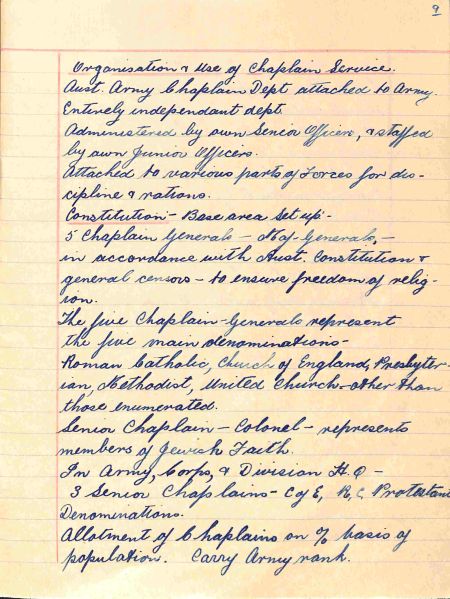 9
Organisation & Use of Chaplain Service.
Aust. Army Chaplain Dept attached to Army.
Entirely independant dept.
Administered by own Senior Officers, & staffed
by own Junior Officers.
Attached to various parts of Forces for dis-
cipline & rations.
Constitution - Base area set up -
5 Chaplain Generals - Maj-Generals, -
in accordance with Aust. Constitution &
general census - to ensure freedom of relig-
ion.
The five Chaplain-Generals represent
the five main denominations -
Roman Catholic, Church of England, Presbyter-
ian, Methodist, United Church - other than
those enumerated.
Senior Chaplain - Colonel - represents
members of Jewish Faith.
In Army, Corps, & Division H.Q -
3 Senior Chaplains - C of E, R.C, Protestant
Denominations.
Allotment of Chaplains on % basis of
population. Carry Army rank.